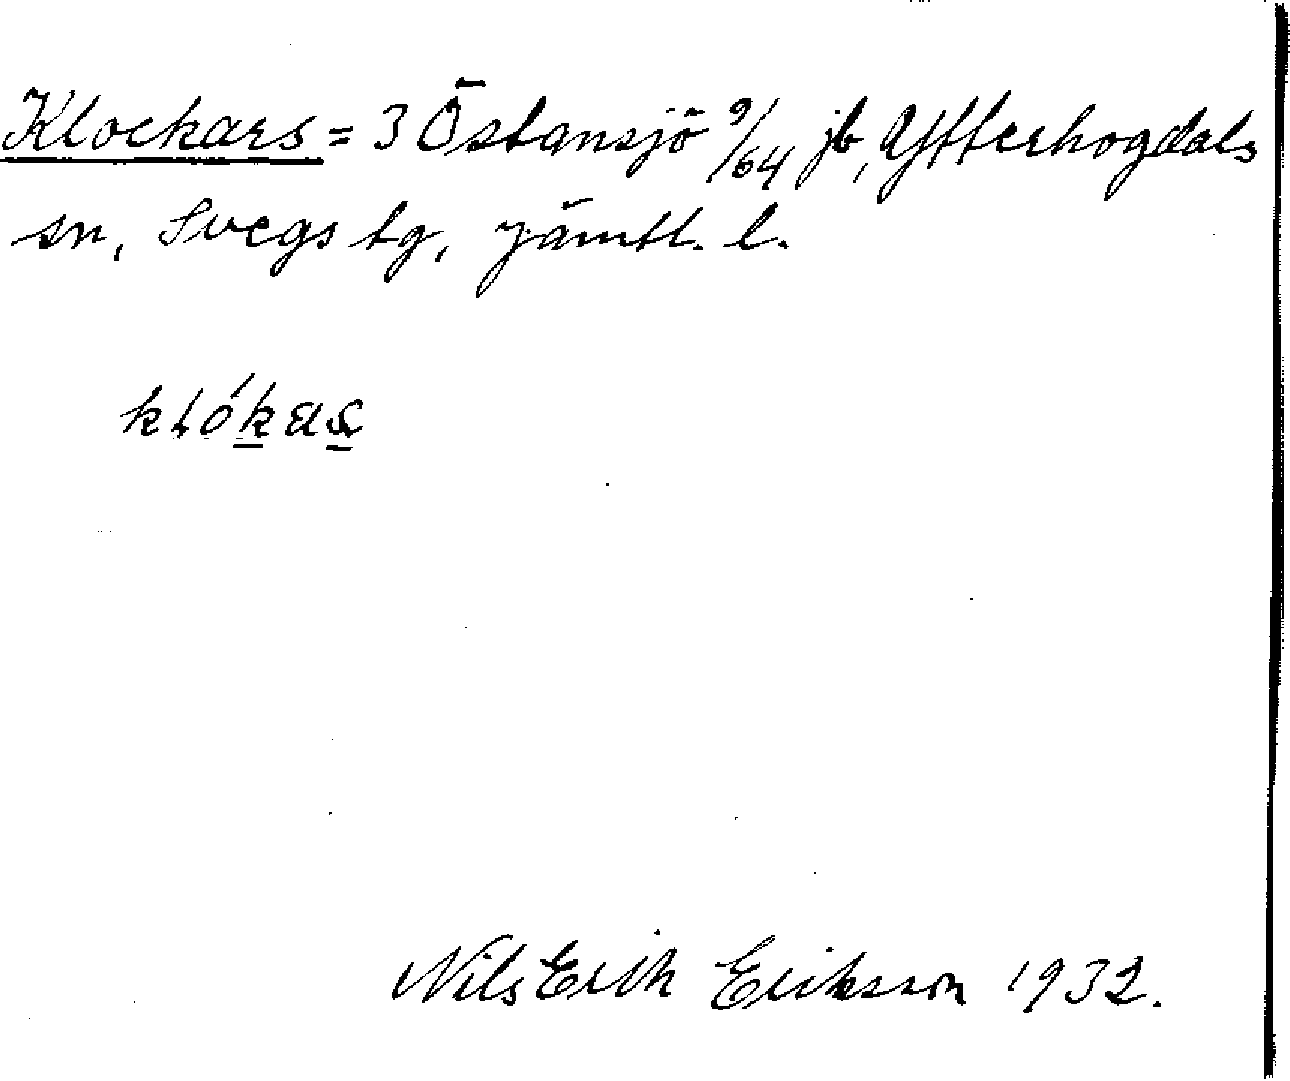 Klockars = 3 Östansjö 9/64 jb, Ytterhogdals
sn, Svegs tg, Jämtl. l.
Nils Erik Eriksson 1932.